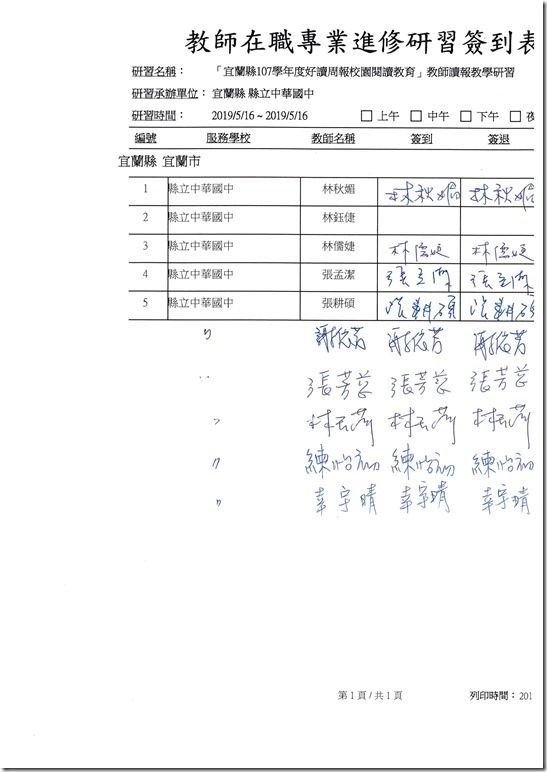 教師在職專業進修研習簽到表
研習名稱： 「宜蘭縣107學年度好讀周報校園閱讀教育」教師讀報教學研習
研習承辦單位： 宜蘭縣 縣立中華國中
研習時間： 2019/5/16 ~ 2019/5/16 □ 上午 □ 中午 □ 下午 □ 夜
編號 服務學校 教師名稱 簽到 簽退
宜蘭縣 宜蘭市
1 縣立中華國中 林秋媚 林秋媚 林秋媚
2 縣立中華國中 林鈺倢
3 縣立中華國中 林儒婕 林儒婕 林儒婕
4 縣立中華國中 張孟潔 張孟潔 張孟潔
5 縣立中華國中 張耕碩 張耕碩 張耕碩
〃
張芳蓉 張芳蓉 張芳蓉
〃 練怡初 練怡初 練怡初
〃 幸宇晴 幸宇晴 幸宇晴
第 1 頁 / 共 1 頁 列印時間：201